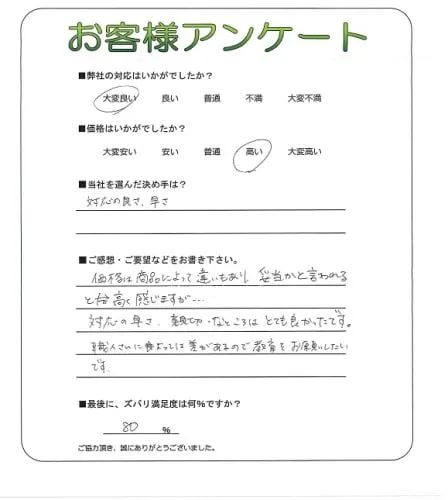 お客様アンケート
■弊社の対応はいかがでしたか？
大変良い 良い 普通 不満 大変不満
■価格はいかがでしたか？
大変安い 安い 普通 高い 大変高い
■当社を選んだ決め手は？
対応の良さ、早さ
■ご感想・ご要望などをお書き下さい。
価格は商品によって違いもあり、妥当かと言われる
と 高く感じますが…
対応の早さ、親切なところはとても良かったです。
職人さんに よっては差があるので教育をお願いしたい
です。
■最後に、ズバリ満足度は何%ですか？
80 %
ご協力頂き、誠にありがとうございました。